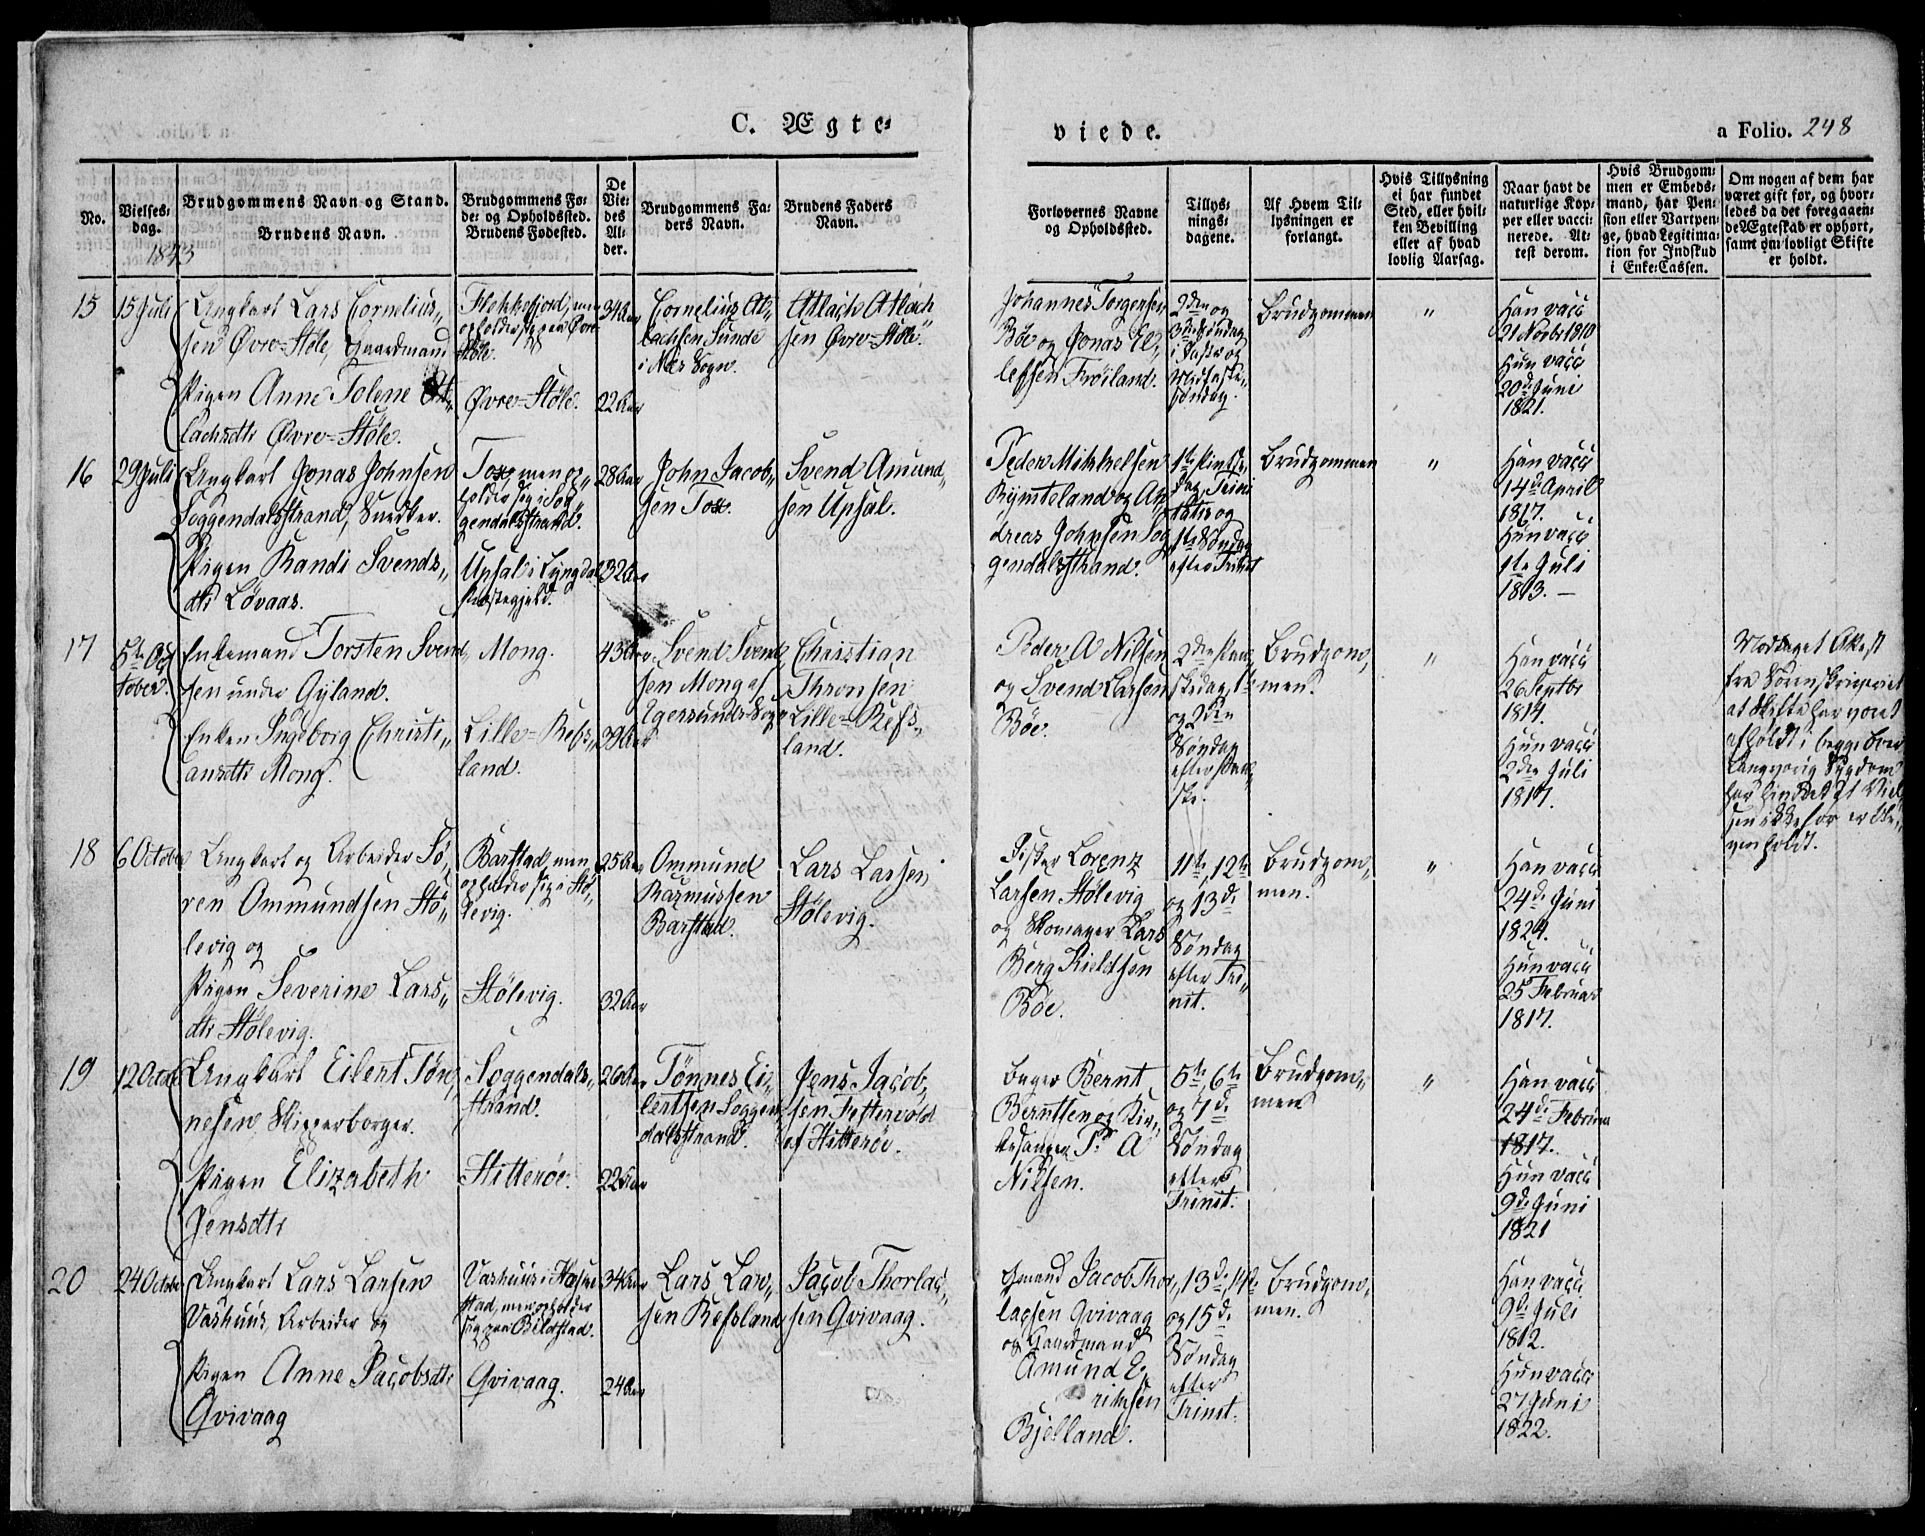 C. Ægte-
viede.
a Folio. 248
No.
Vielses-
dag.
1843
Brudgommens Navn og Stand.
Brudens Navn.
Brudgommens Fø-
de- og Opholdssted.
Brudens Fødested.
De
Vie-
des
Al-
der.
Brudgommens Fa-
ders Navn.
Brudens Faders
Navn.
Forlovernes Navne
og Opholdssted.
Tillys-
nings-
dagene.
Af Hvem Til-
lysningen er
forlangt.
Hvis Tillysning
ei har fundet
Sted, eller hvil-
ken Bevilling
eller af hvad
lovlig Aarsag.
Naar havt de
naturlige Kop-
per eller vacci-
nerede. At-
test derom.
Hvis Brudgom-
men er Embeds-
mand, har Pen-
sion eller Vartpen-
ge, hvad Legitima-
tion for Indskud
i Enke-Cassen.
Om nogen af dem har
været gift før, og hvor-
ledes da det foregaaen-
de Ægteskab er ophørt,
samt om lovligt Skifte
er holdt.
15
15 Juli
Ungkarl Lars Cornelius-
sen Øvre-Støle, Gaardmand
Pigen Anne Tolene At-
lachsdtr Øvre-Støle.
Flekkefjord, men
opholder sig paa Øvre
Støle.
Øvre-Støle.
34 Aar
22 Aar
Cornelius At-
lachsen Sunde
i Næs Sogn.
Atlach Atlach
sen Øvre-Støle.
Johannes Torgersen
Bøe og Jonas El-
lefsen Frøiland.
2den og
3die Søndag
i Faste og
Midfaste-
søndag.
Brudgommen
"
Han vacc
21 Novbr 1810
Hun vacc
20de Juni
1821.
16
29 Juli
Ungkarl Jonas Johnsen
Soggendalsstrand, Snedker.
Pigen Randi Svends-
dtr Løvaas.
Tox, men op-
holder sig i Sog-
gendalsstrand.
Upsal i Lyngdal
Præstegjeld.
28 Aar
32 Aar
John Jacob-
sen Tox.
Svend Amund-
sen Upsal.
Peder Mikkelsen
Rymteland og An-
dreas Johnsen Sog
gendalsstrand.
1ste Pintse-
dag, Trini
tatis og
1ste Søndag
efter Trinit
Brudgommen
"
Han vacc
14de April
1817.
Hun vacc
1ste Juli
1813. —
17
5te Oc
tober.
Enkemand Torsten Svend-
sen under Gyland.
Enken Ingeborg Christi-
ansdtr Mong.
Mong.
Lille-Refs-
land.
43 Aar
39 Aar
Svend Svend-
sen Mong af
Egersunds Sogn
Christian
Thronsen
Lille-Refs-
land.
Peder A Nilsen
og Svend Larsen
Bøe.
2den Paa-
skedag, 1ste
og 2den
Søndag
efter Paa-
ske.
Brudgom-
men.
"
Han vacc
26 Septbr
1814.
Hun vacc
2den Juli
1817.
Modtaget Attest
fra Sorenskriveriet
at Skifte har været
afholdt i begge Boer
Langvarig Sygdom
har hindret at Viel-
sen ikke før er ble-
ven holdt.
18
6 October
Ungkarl og Arbeider Sø-
ren Ommundsen Stø-
levig og
Pigen Severine Lars-
dtr Stølevig.
Barstad, men
opholder sig i Stø-
levig.
Stølevig.
25 Aar
32 Aar
Ommund
Rasmussen
Barstad.
Lars Larsen
Stølevig.
Fisker Lorenz
Larsen Stølevig
og Skomager Lars
Berg Kieldsen
Bøe.
11te, 12te
og 13de
Søndag
efter Tri-
nit.
Brudgom-
men.
"
Han vacc
24de Juni
1824.
Hun vacc
25 Februar
1817.
19
12 Octob
Ungkarl Eilert Tøn-
nesen Skipperborger.
Pigen Elizabeth
Jensdtr
Soggendals-
strand.
Hitterøe.
26 Aar
22 Aar
Tønnes Ei-
lertsen Soggen-
dalsstrand.
Jens Jacob-
sen
af Hitterøe.
Bager Bernt
Berntsen og Kir-
kesanger P. A
Nilsen.
5te, 6te
og 7de
Søndag
efter
Trinit.
Brudgom-
men
"
Han vacc
24de Februar
1817.
Hun vacc
9de Juni
1821
20
24 October
Ungkarl Lars Larsen
Vashuus, Arbeider og
Pigen Anne Jacobsdtr
Qvivaag
Vashuus i Hæske
stad, men opholder
sig paa Bilstad.
Qvivaag.
34 Aar
24 Aar
Lars Lar-
sen Refsland
Jacob Thorlac-
sen Qvivaag.
Gmand Jacob Thor-
lacsen Qvivaag
og Gaardmand
Amund E-
riksen
Bjelland.
13de, 14de
og 15de
Søndag
efter
Trinit.
Brudgom-
men.
Han vacc
9de Juli
1812.
Hun vacc
27 Juni
1822.